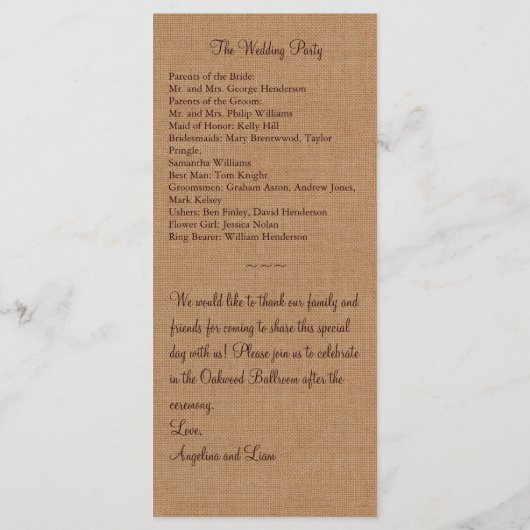 The Wedding Party
Parents of the Bride:
Mr. and Mrs. George Henderson
Parents of the Groom:
Mr. and Mrs. Philip Williams
Maid of Honor: Kelly Hill
Bridesmaids: Mary Brentwwod, Taylor
Pringle,
Samantha Williams
Best Man: Tom Knight
Groomsmen: Graham Aston, Andrew Jones,
Mark Kelsey
Ushers: Ben Finley, David Henderson
Flower Girl: Jessica Nolan
Ring Bearer: William Henderson
~ ~ ~ ~
We would like to thank our family and
friends for coming to share this special
day with us! Please join us to celebrate
in the Oakwood Ballroom after the
ceremony.
Love,
Angelina and Liam